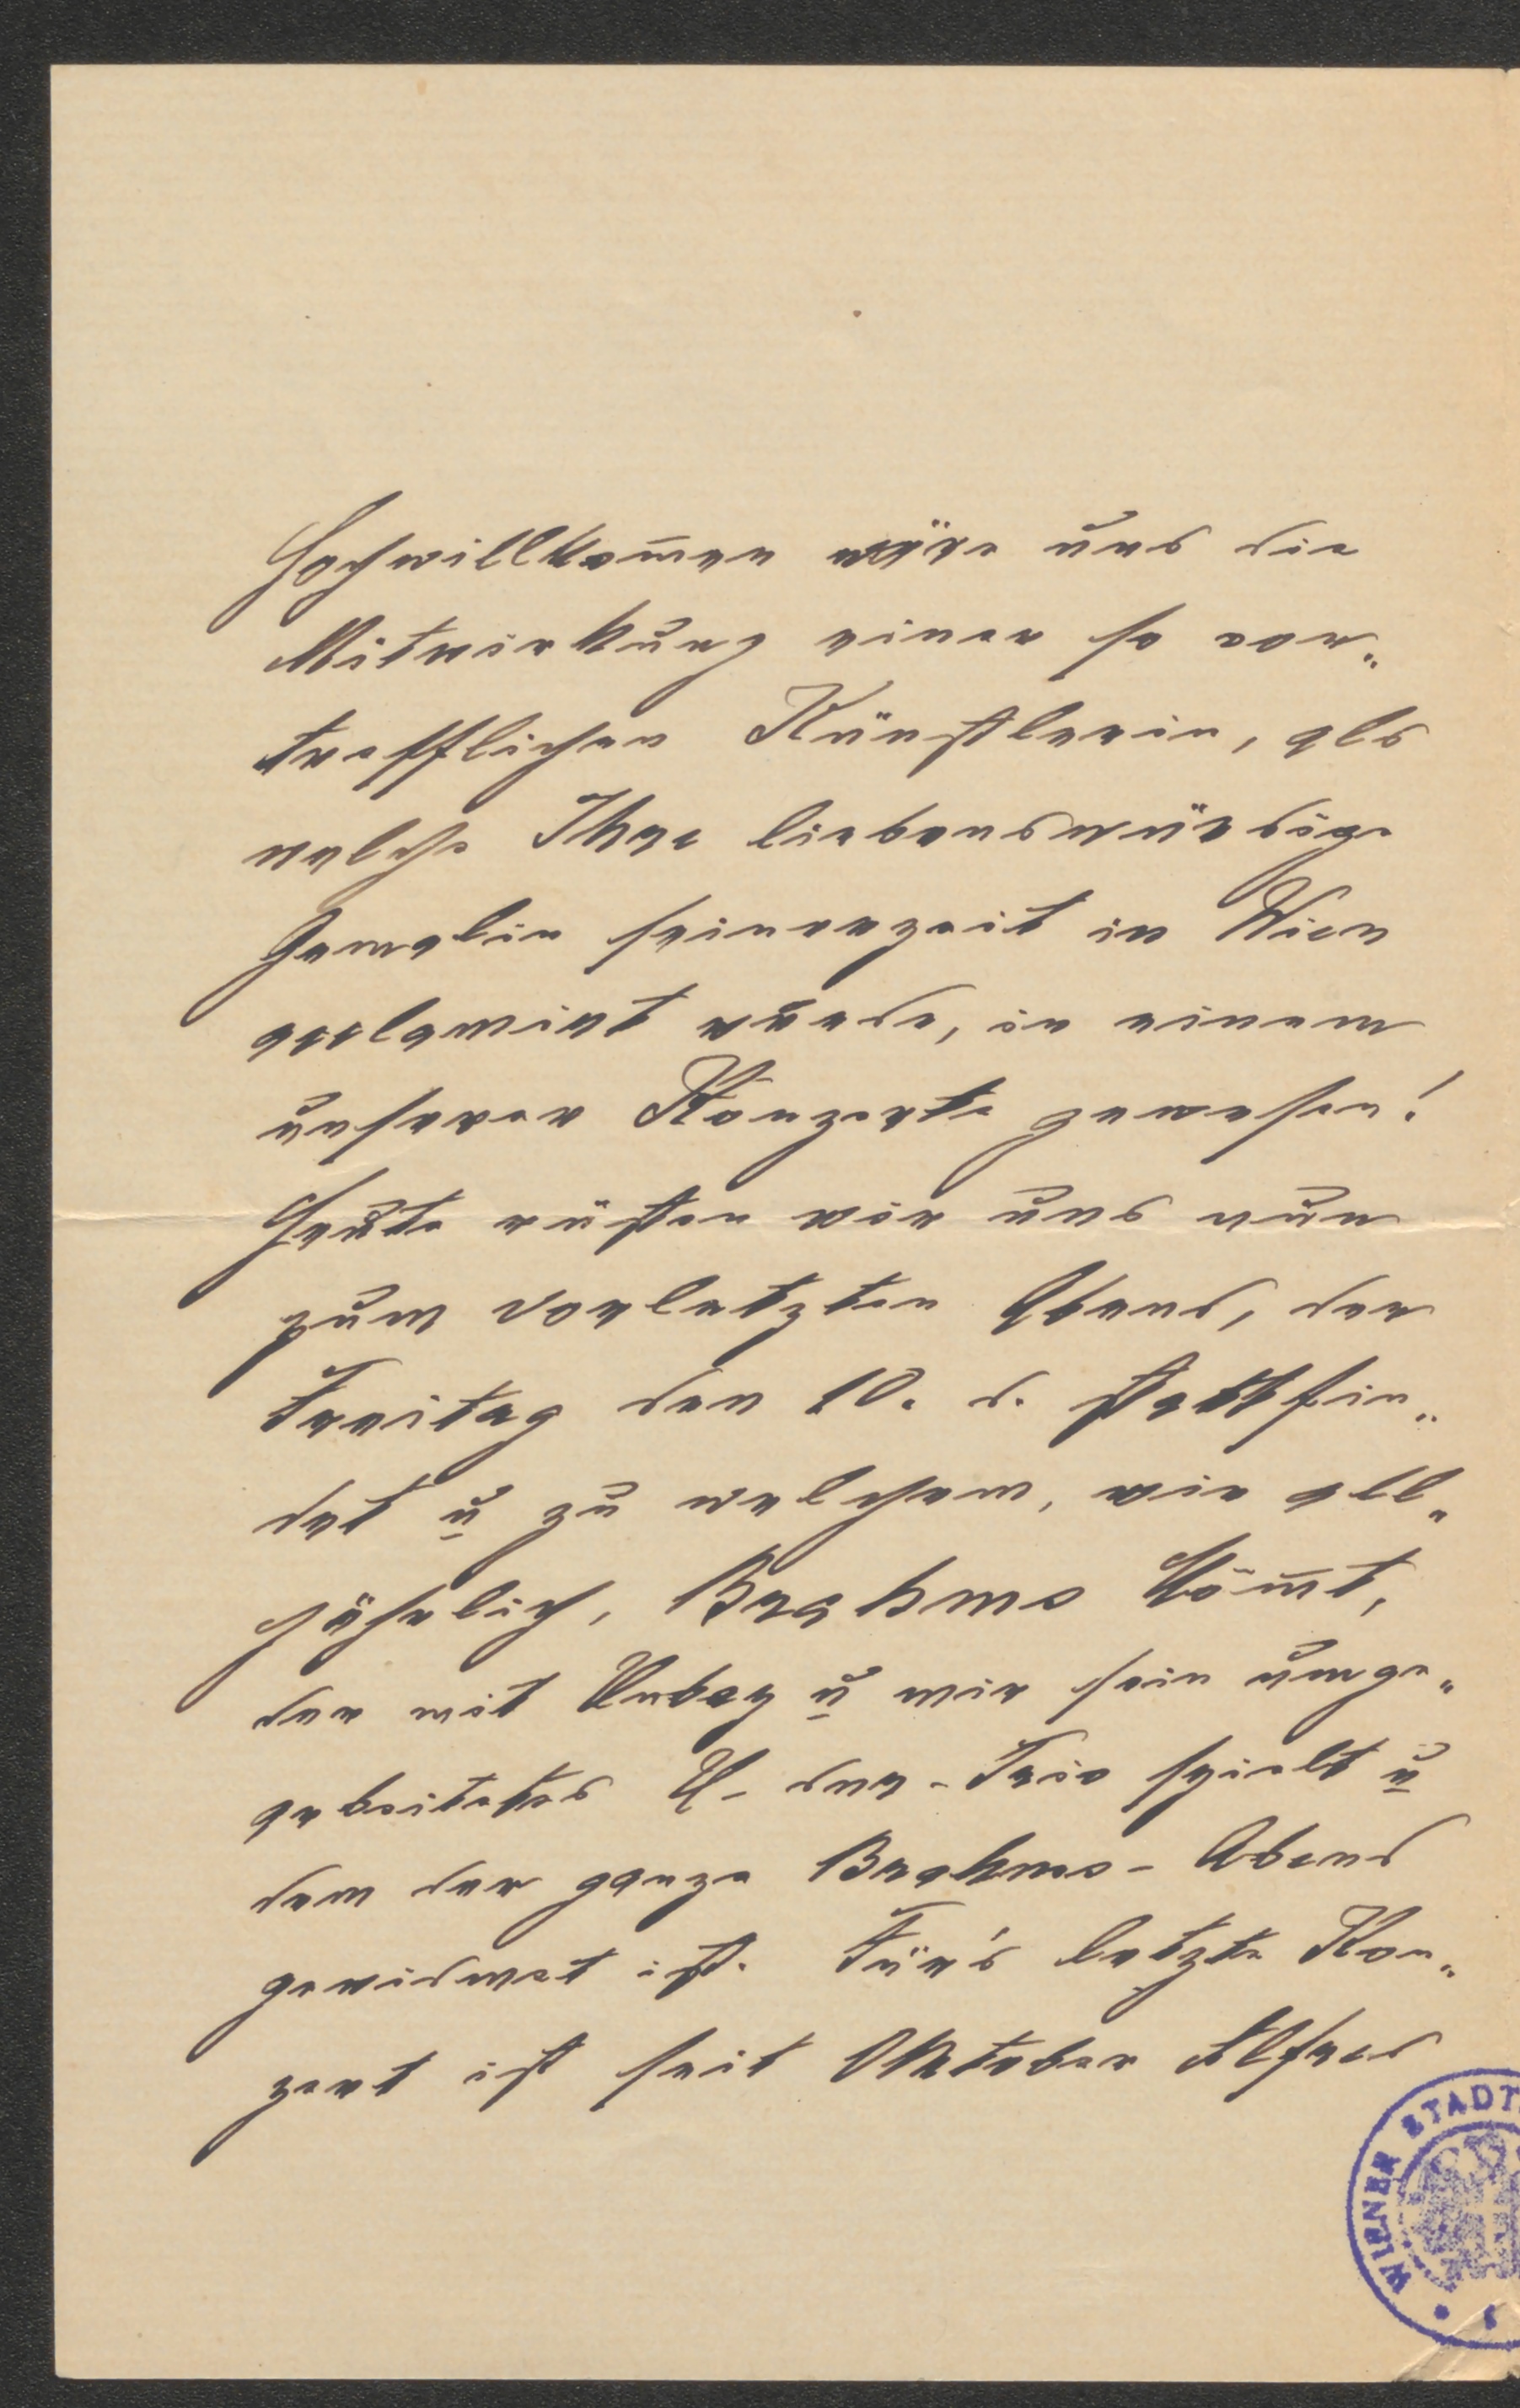 Hochwillkom̅en wäre uns die
Mitwirkung einer so vor„
trefflichen Künstlerin, als
welche Ihre liebenswürdige
Gemalin seinerzeit in Wien
acclamirt wurde, in einem
unserer Konzerte gewesen!
Heute rüsten wir uns nun
zum vorletzten Abend, der
Freitag den 10. d. stattfin„
det u zu welchem, wie all„
jährlich, Brahms köm̅t,
der mit Hubay u mir sein umge„
arbeitetes H-dur-Trio spielt u
dem der ganze Brahms-Abend
gewidmet ist. Für's letzte Kon„
zert ist seit Oktober Alfred
WIENER STADT